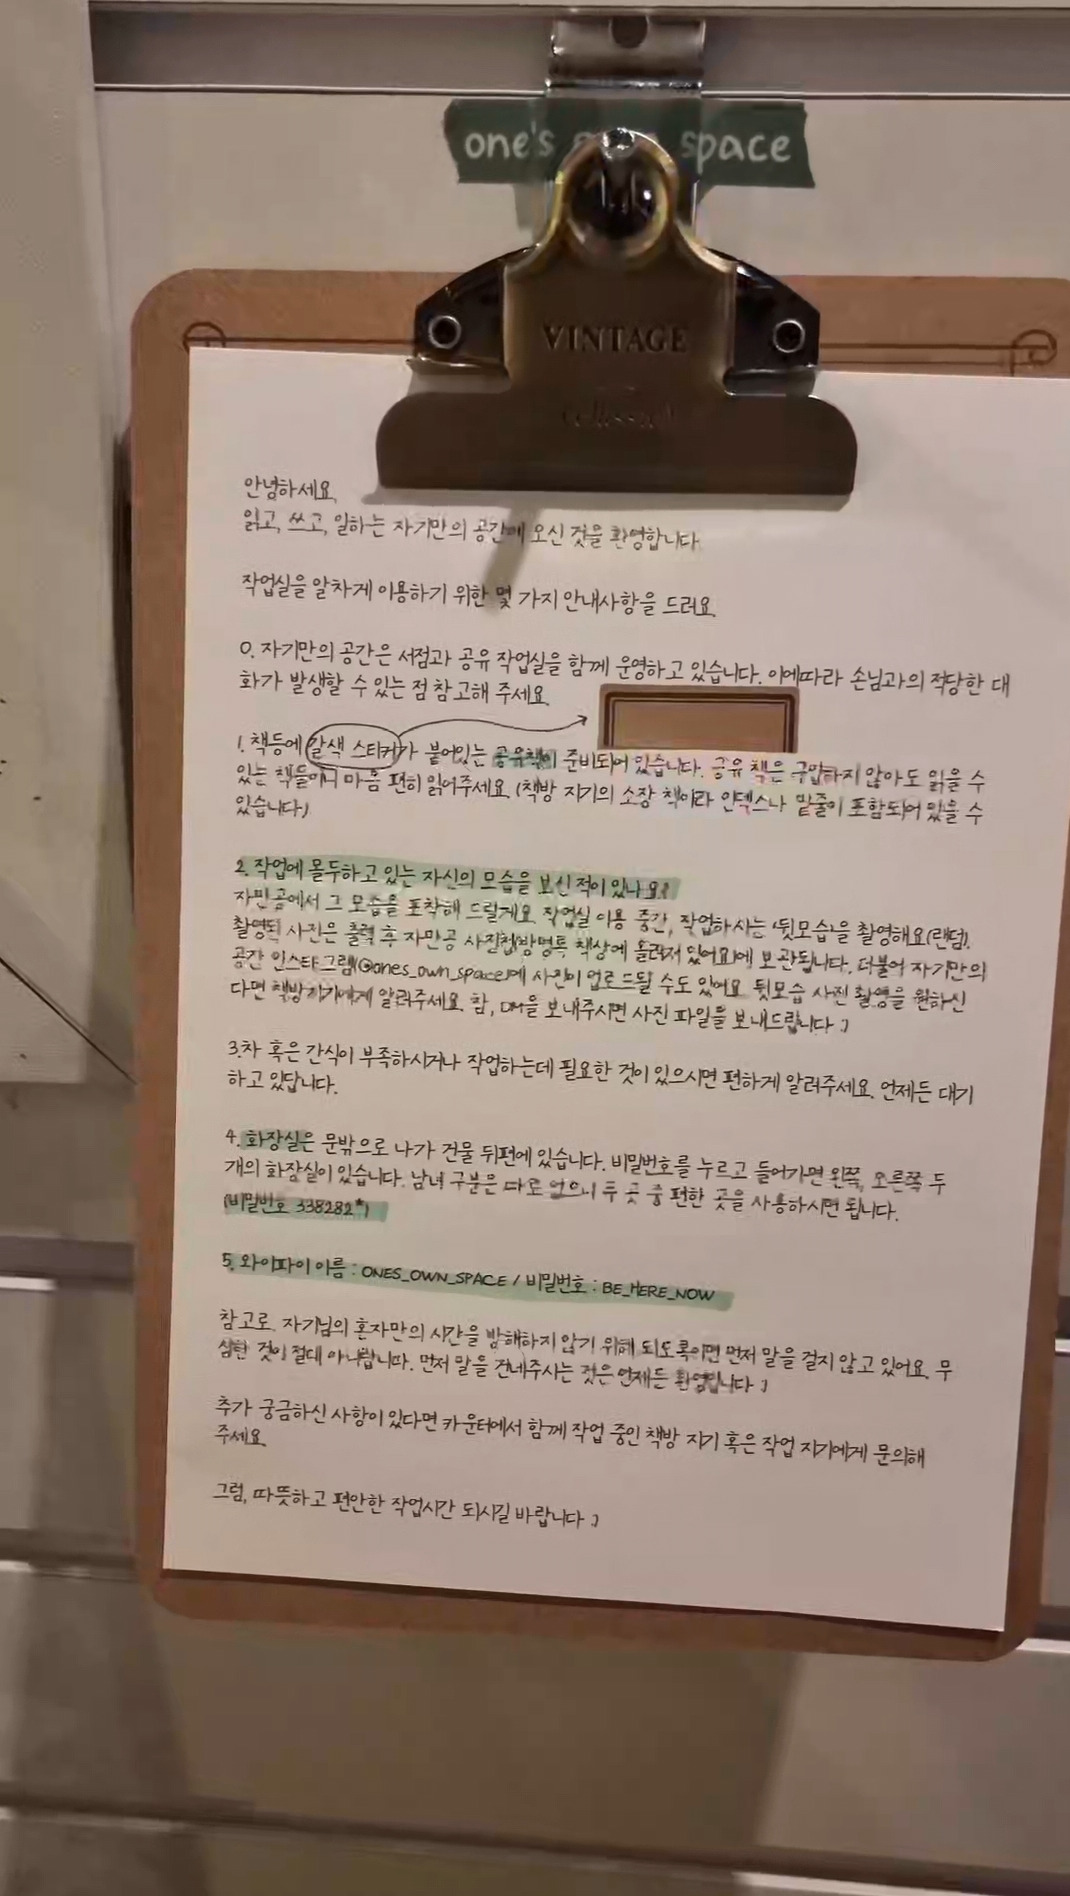 one's space
VINTAGE
안녕하세요.
읽고, 쓰고, 일하는 자기만의 공간에 오신 것을 환영합니다.
작업실을 알차게 이용하기 위한 몇 가지 안내사항을 드려요.
0. 자기만의 공간은 서점과 공유 작업실을 함께 운영하고 있습니다. 이에따라 손님과의 적당한 대
화가 발생할 수 있는 점 참고해 주세요.
1. 책등에 갈색 스티커가 붙어있는 공유책이 준비되어 있습니다. 공유 책은 구입하지 않아도 읽을 수
있는 책들이니 마음 편히 읽어주세요. (책방 지기의 소장 책이라 인덱스나 밑줄이 포함되어 있을 수
있습니다)
2. 작업에 몰두하고 있는 자신의 모습을 보신 적이 있나요?
자만공에서 그 모습을 포착해 드릴게요. 작업실 이용 중간, 작업하시는 '뒷모습'을 촬영해요(랜덤).
촬영된 사진은 출력 후 자만공 사진첩(방명록 책상에 올려져 있어요)에 보관됩니다. 더불어 자기만의
공간 인스타그램(@ones_own_space)에 사진이 업로드될 수도 있어요. 뒷모습 사진 촬영을 원하신
다면 책방지기에게 알려주세요. 참, DM을 보내주시면 사진 파일을 보내드립니다 :)
3.차 혹은 간식이 부족하시거나 작업하는데 필요한 것이 있으시면 편하게 알려주세요. 언제든 대기
하고 있답니다.
4. 화장실은 문밖으로 나가 건물 뒤편에 있습니다. 비밀번호를 누르고 들어가면 왼쪽, 오른쪽 두
개의 화장실이 있습니다. 남녀 구분은 따로 없으니 두 곳 중 편한 곳을 사용하시면 됩니다.
(비밀번호 338282*)
5. 와이파이 이름 : ONES_OWN_SPACE / 비밀번호 : BE_HERE_NOW
참고로, 자기님의 혼자만의 시간을 방해하지 않기 위해 되도록이면 먼저 말을 걸지 않고 있어요. 무
심한 것이 절대 아니랍니다. 먼저 말을 건네주시는 것은 언제든 환영입니다 :)
추가 궁금하신 사항이 있다면 카운터에서 함께 작업 중인 책방 지기 혹은 작업 지기에게 문의해
주세요.
그럼, 따뜻하고 편안한 작업시간 되시길 바랍니다 :)